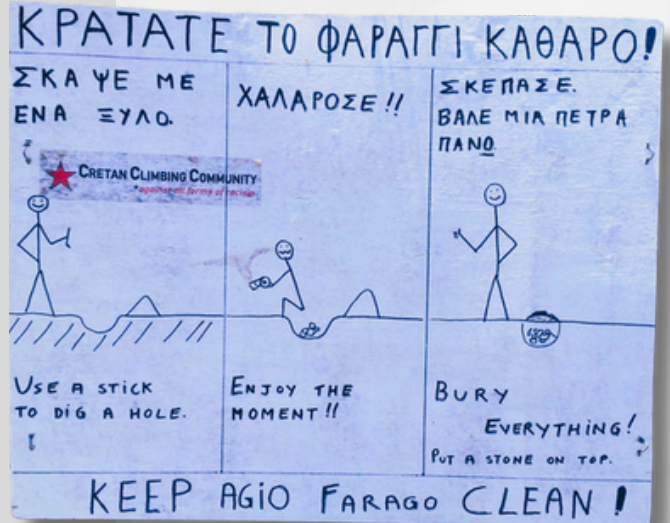 ΚΡΑΤΑΤΕ ΤΟ ΦΑΡΑΓΓΙ ΚΑΘΑΡΟ!
ΣΚΑΨΕ ΜΕ
ΕΝΑ ΞΥΛΟ.
CRETAN CLIMBING COMMUNITY
*against all forms of racism
USE A STICK
TO DIG A HOLE.
ΧΑΛΑΡΟΣΕ!!
ENJOY THE
MOMENT!!
ΣΚΕΠΑΣΕ.
ΒΑΛΕ ΜΙΑ ΠΕΤΡΑ
ΠΑΝΟ.
BURY
EVERYTHING!
PUT A STONE ON TOP.
KEEP AGIO FARAGO CLEAN!